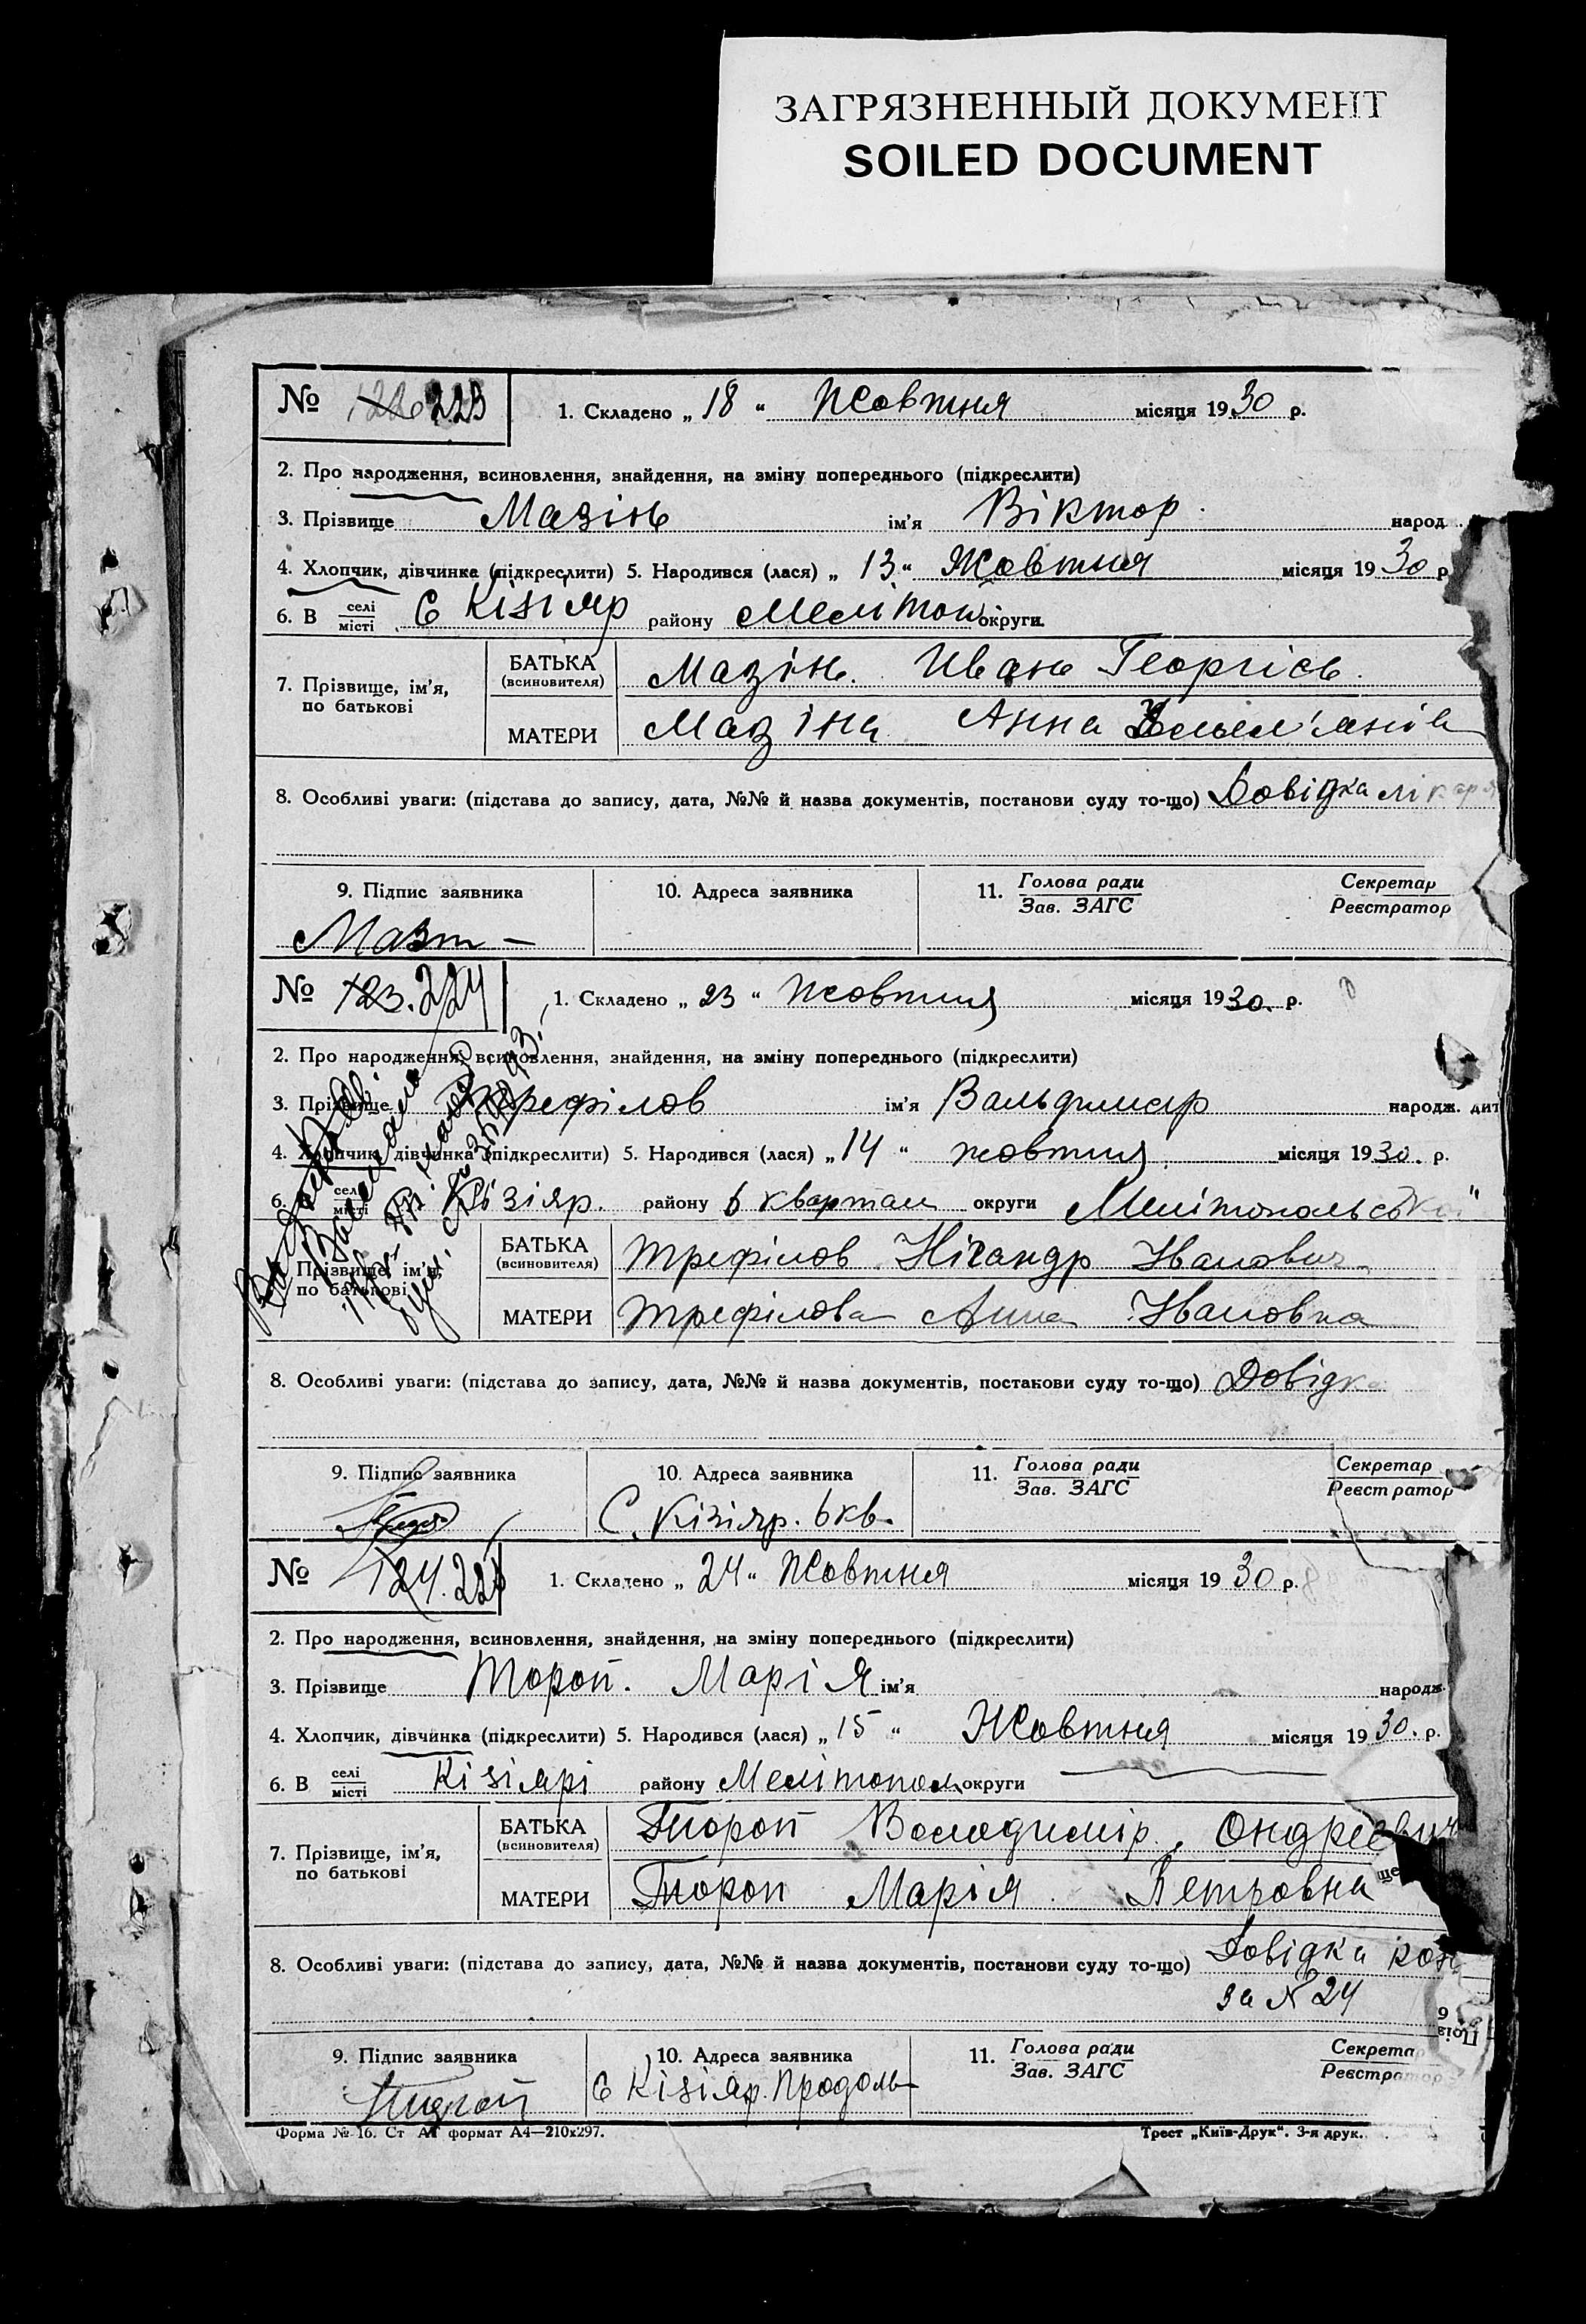 ЗАГРЯЗНЕННЫЙ ДОКУМЕНТ
SOILED DOCUMENT
№ 223
1. Складено „ 18 “ Жовтня місяця 1930 р.
2. Про народження, всиновлення, знайдення, на зміну попереднього (підкреслити)
3. Прізвище Мазінь ім'я Віктор народ
4. Хлопчик, дівчинка (підкреслити) 5. Народився (лася) „ 13 “ Жовтня місяця 1930 р
6. В селі місті С Кізіяр району Мелітоп округи
7. Прізвище, ім'я, по батькові
БАТЬКА (всиновителя) Мазінь Ивань Георгієв
МАТЕРИ Мазіна Анна
8. Особливі уваги: (підстава до запису, дата, №№ й назва документів, постанови суду то-що) Довідка лікаря
9. Підпис заявника
10. Адреса заявника
11. Голова ради Зав. ЗАГС
Секретар Реєстратор
№ 123. 224
1. Складено „ 23 “ Жовтня місяця 1930. р.
2. Про народження, всиновлення, знайдення, на зміну попереднього (підкреслити)
3. Прізвище Трефілов ім'я Вальдимар народж. дит
4. Хлопчик, дівчинка (підкреслити) 5. Народився (лася) „ 14 “ жовтня місяця 1930. р.
6. селі місті Кізіяр. району 6 квартал округи Мелітопольської
Прізвище, ім'я, по батькові
БАТЬКА (всиновителя) Трефілов Нігандр Іванович
МАТЕРИ Трефілова Анна Івановна
8. Особливі уваги: (підстава до запису, дата, №№ й назва документів, постанови суду то-що) Довідка
9. Підпис заявника
10. Адреса заявника
С. Кізіяр. 6 кв.
11. Голова ради Зав. ЗАГС
Секретар Реєстратор
№ 124. 225
1. Складено „ 24 “ Жовтня місяця 1930 р.
2. Про народження, всиновлення, знайдення, на зміну попереднього (підкреслити)
3. Прізвище Тороп. Марія ім'я народж.
4. Хлопчик, дівчинка (підкреслити) 5. Народився (лася) „ 15 “ Жовтня місяця 1930. р.
6. В селі місті Кізіярі району Мелітопол округи
7. Прізвище, ім'я, по батькові
БАТЬКА (всиновителя) Тороп Володимір Ондрєєвич
МАТЕРИ Тороп Марія Петровна
8. Особливі уваги: (підстава до запису, дата, №№ й назва документів, постанови суду то-що) Довідка
за № 24
9. Підпис заявника
10. Адреса заявника
С Кізіяр. Продоль
11. Голова ради Зав. ЗАГС
Секретар Реєстратор
Форма № 16. Ст АГ формат А4—210х297.
Трест „Київ-Друк“. 3-я друк.